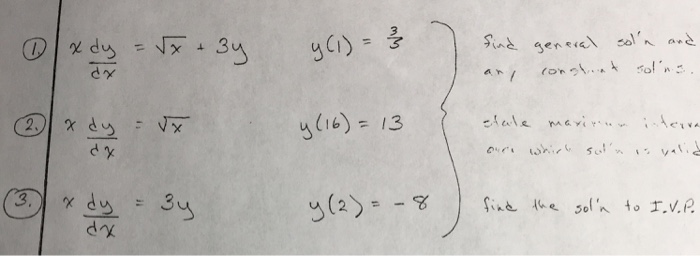 ① x dy/dx = √x + 3y y(1) = 3/5 find general sol'n and any constant sol'ns.
② x dy/dx = √x y(16) = 13 state maximum interva over which sol'n is valid
③ x dy/dx = 3y y(2) = -8 find the sol'n to I.V.P.